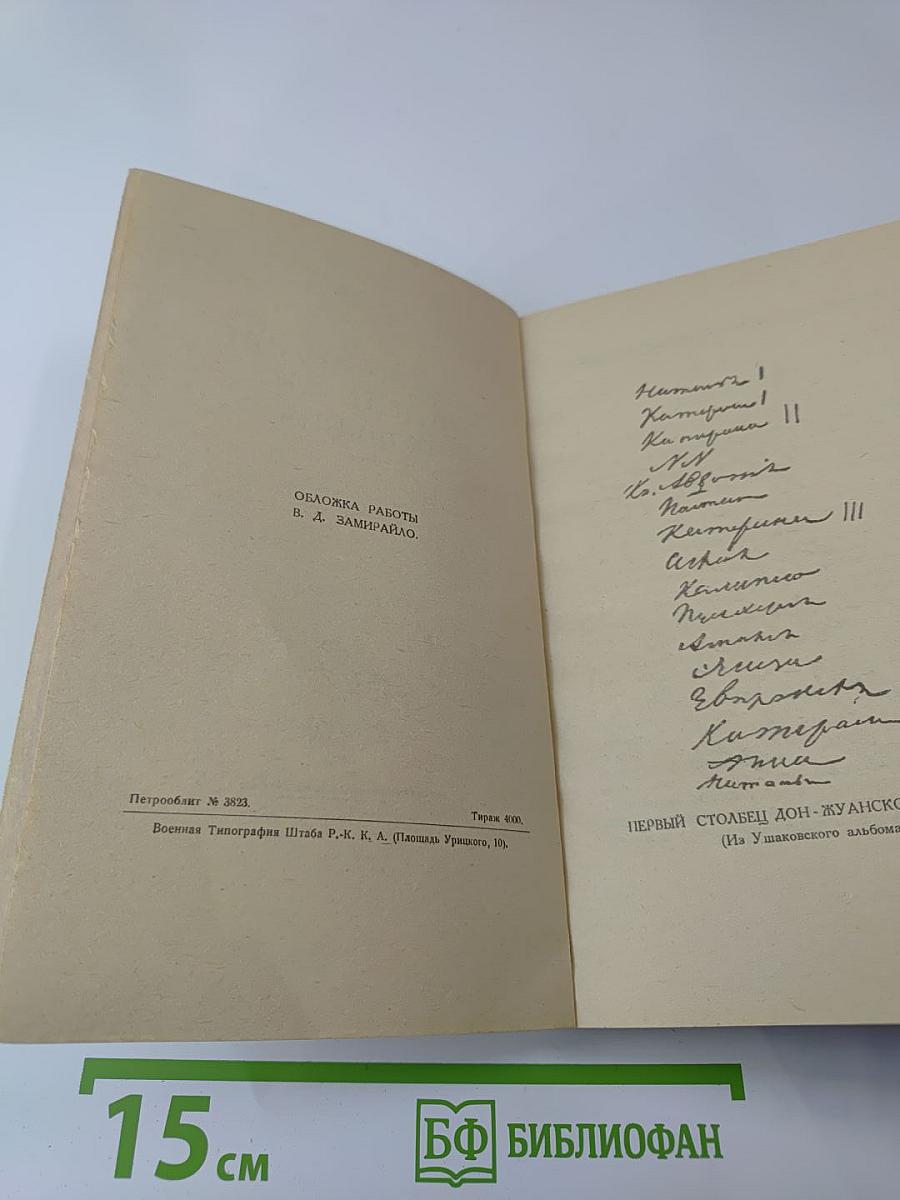 ОБЛОЖКА РАБОТЫ
В. Д. ЗАМИРАЙЛО.
Петрооблит № 3823.
Тираж 4000.
Военная Типография Штаба Р.-К. К. А. (Площадь Урицкого, 10).
Наталья I
Катерина I
Катерина II
NN
Кн. Авдотия
Настасья
Катерина III
Аглая
Калипсо
Пульхерия
Амалия
Элиза
Евпраксея
Катерина
Анна
Наталья
ПЕРВЫЙ СТОЛБЕЦ ДОН-ЖУАНСКО
(Из Ушаковского альбома
15 см
БФ БИБЛИОФАН